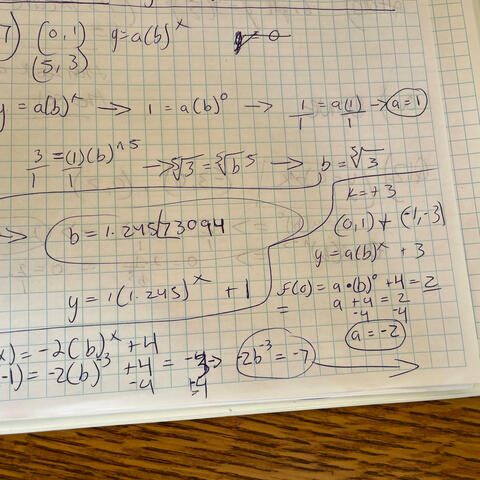 7) (0,1) y=a(b)^x y=0
(5,3)
y = a(b)^x → 1 = a(b)^0 → 1/1 = a(1)/1 → a=1
3/1 = (1)(b)^5/1 → ⁵√3 = ⁵√b^5 → b = ⁵√3
k=+3
→ b = 1.24573094
(0,1) + (-1,-3)
y = a(b)^x + 3
y = 1(1.245)^x + 1
f(0) = a•(b)^0 +4 = 2
= a + 4 = 2
-4 -4
a = -2
x) = -2(b)^x +4
-1) = -2(b)^-3 +4 = -3 → -2b^-3 = -7 →
-4 -4